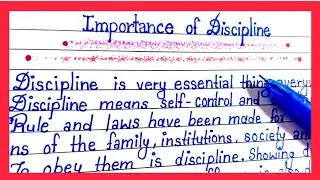 Importance of Discipline
Discipline is very essential thing every
Discipline means self-control and
Rule and laws have been made for
ns of the family, institutions, society an
To obey them is discipline. Showing d